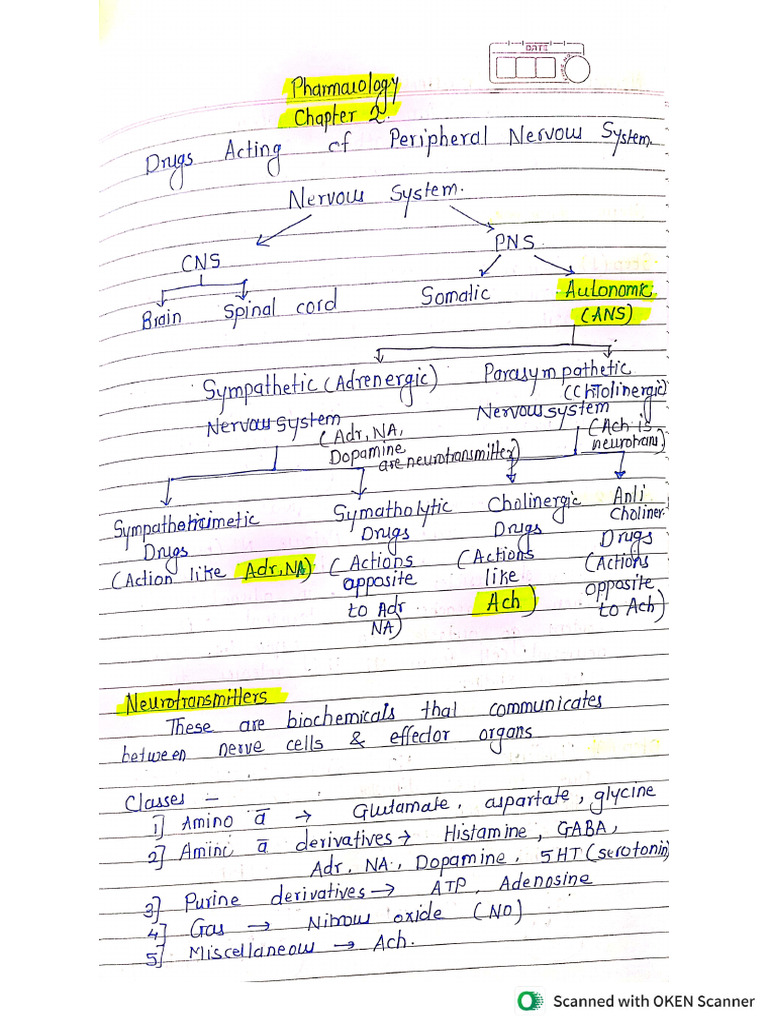 DATE
Pharmacology
Chapter 2.
Drugs Acting of Peripheral Nervous System.
Nervous System.
CNS
PNS
Brain
Spinal cord
Somatic
Autonomic
(ANS)
Sympathetic (Adrenergic)
Nervous system
(Adr, NA,
Dopamine
are neurotransmitter)
Parasympathetic
(Cholinergic)
Nervous system
(Ach is
neurotrans)
Sympathomimetic
Drugs
(Action like Adr, NA)
Symatholytic
Drugs
(Actions
opposite
to Adr
NA)
Cholinergic
Drugs
(Actions
like
Ach)
Anti
Choliner.
Drugs
(Actions
opposite
to Ach)
Neurotransmitters
These are biochemicals that communicates
between nerve cells & effector organs
Classes –
1] Amino ā → Glutamate, aspartate, glycine
2] Amini ā derivatives → Histamine, GABA,
Adr, NA, Dopamine, 5HT (serotonin)
3] Purine derivatives → ATP, Adenosine
4] Gas → Nitrous oxide (NO)
5] Miscellaneous → Ach.
Scanned with OKEN Scanner